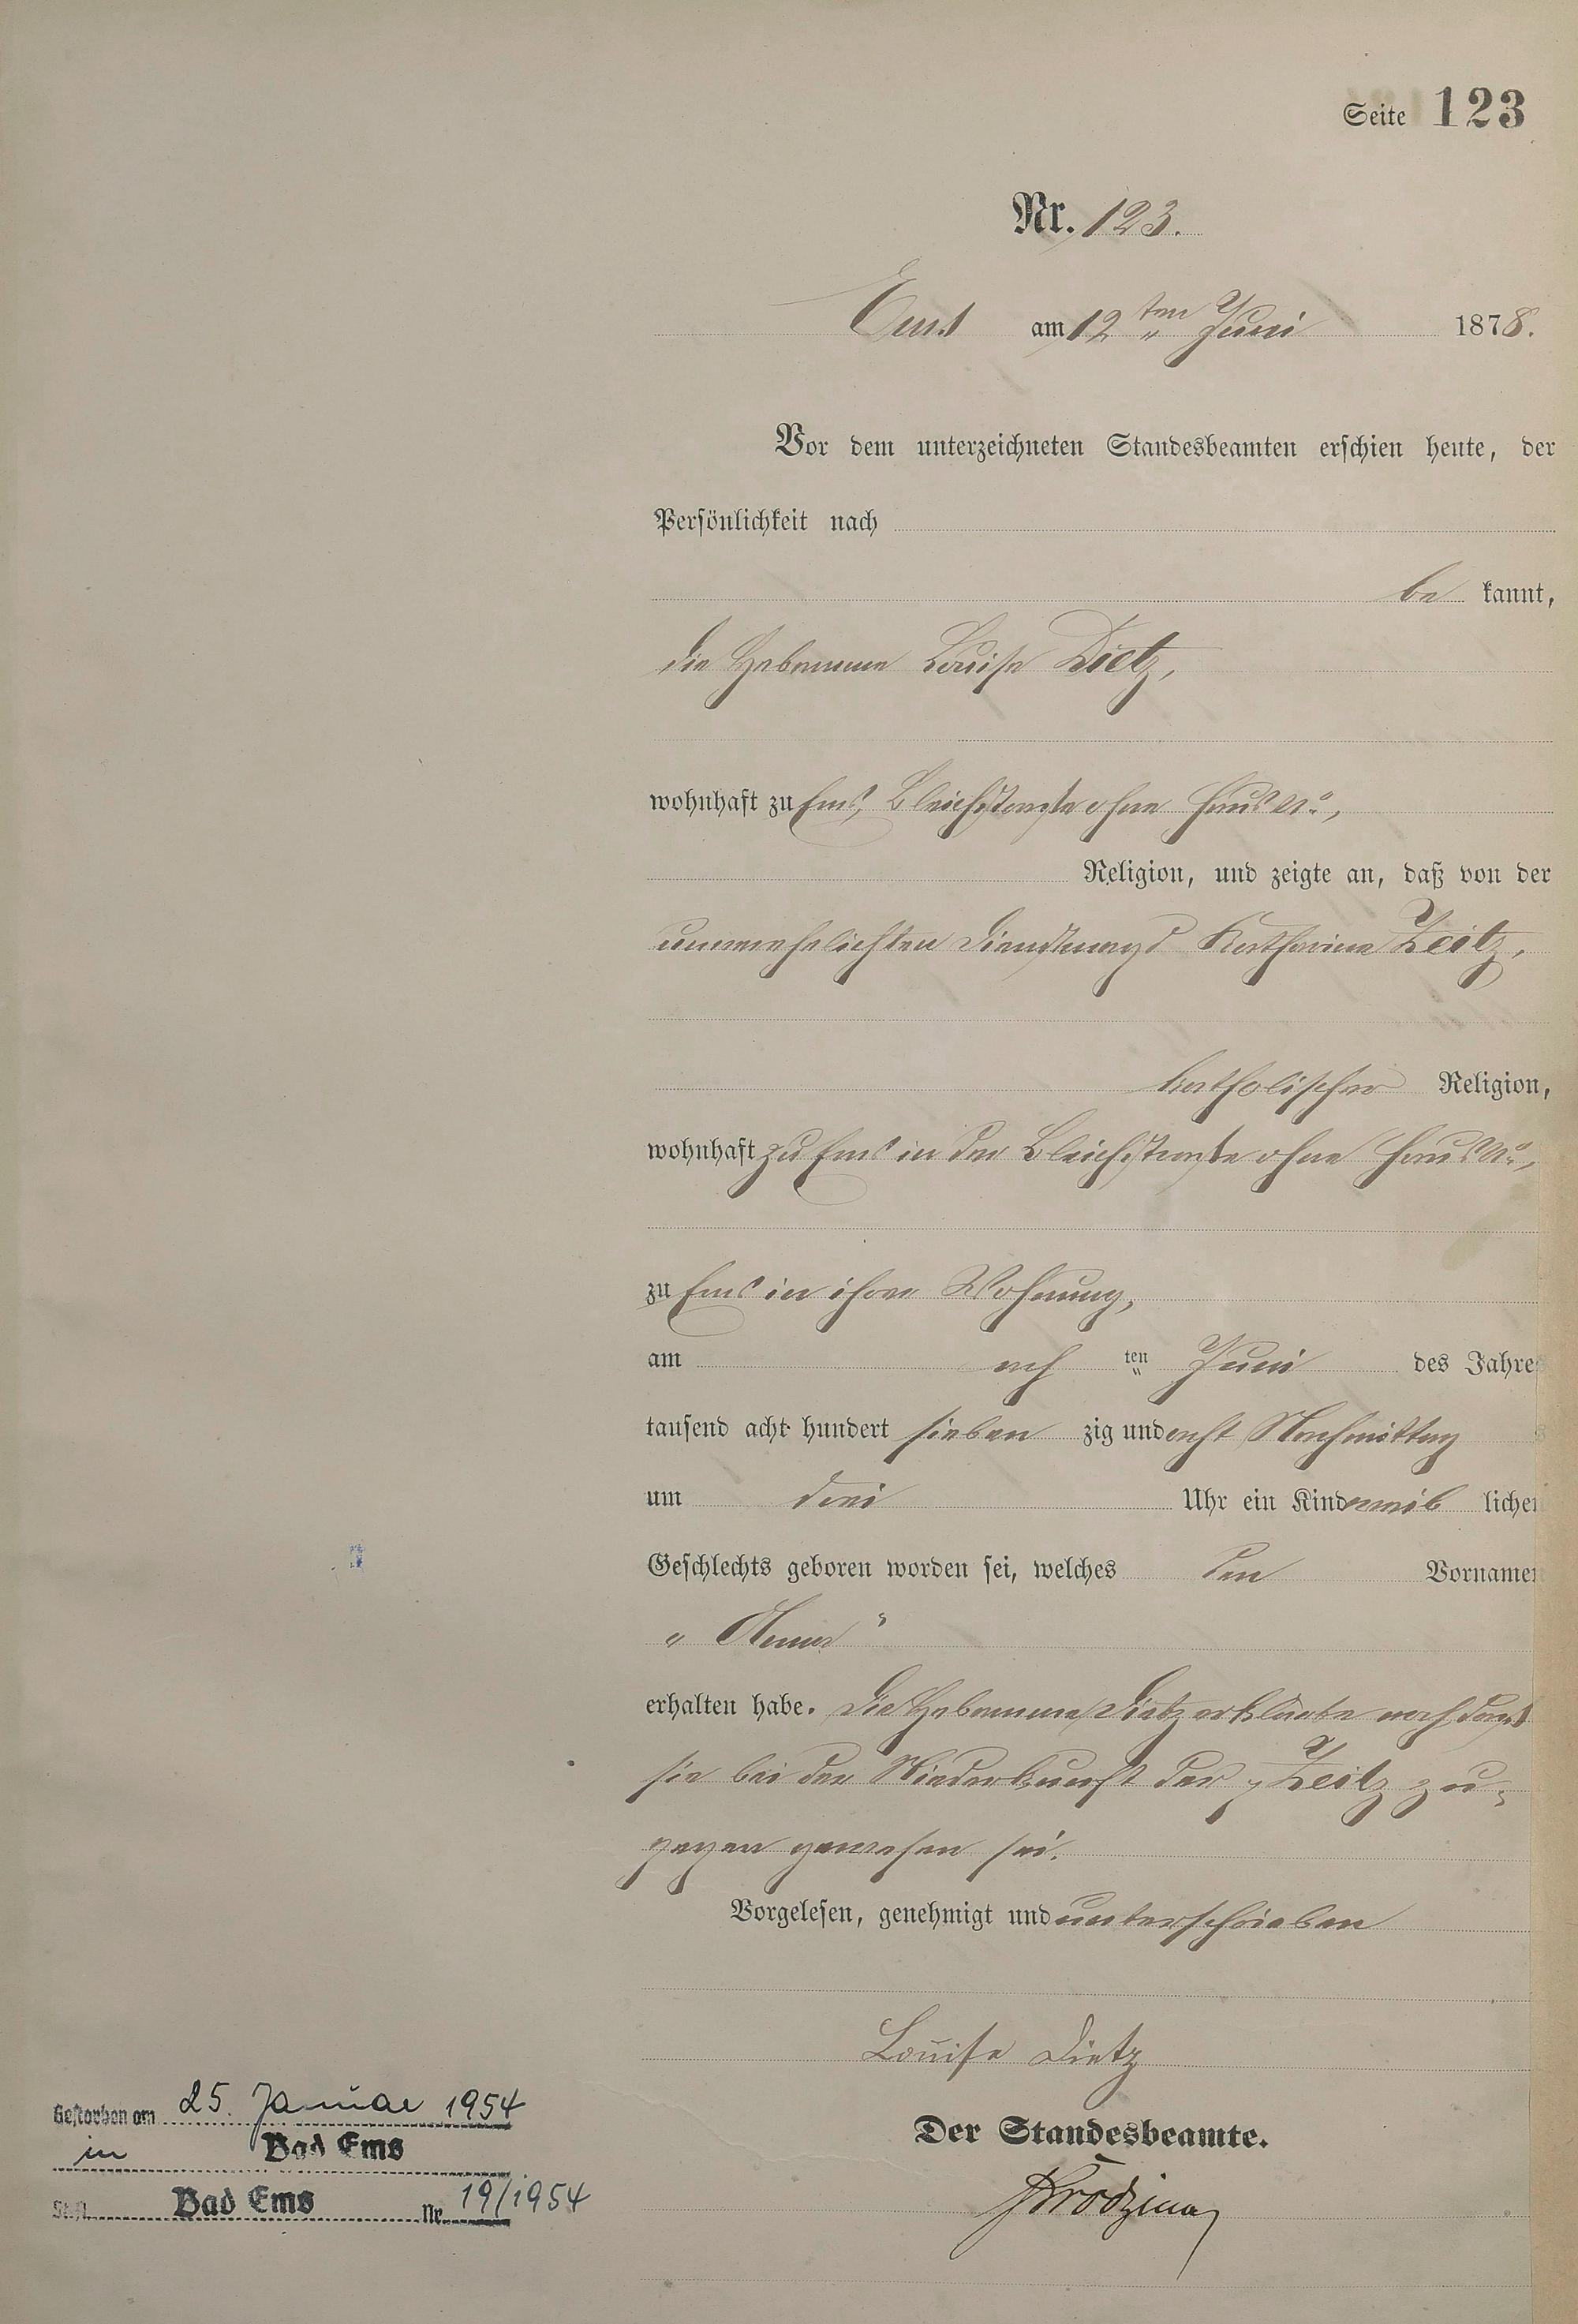 Seite 123
Nr. 123.
Ems am 12 ten Juni 1878.
Vor dem unterzeichneten Standesbeamten erschien heute, der
Persönlichkeit nach
be kannt,
die Hebamme Louise Dietz,
wohnhaft zu Ems, Bleichstraße ohne Haus No,
Religion, und zeigte an, daß von der
unverehelichten Dienstmagd Katharina Zeitz,
katholischer Religion,
wohnhaft zu Ems in der Bleichstraße ohne Haus No,
zu Ems in ihrer Wohnung,
am ach ten Juni des Jahres
tausend acht hundert sieben zig und acht Nachmittag s
um drei Uhr ein Kind weib lichen
Geschlechts geboren worden sei, welches den Vornamen
„ Anna "
erhalten habe. Die Hebamme Dietz erklärte noch daß
sie bei der Niederkunft der Zeitz zu-
gegen gewesen sei.
Vorgelesen, genehmigt und unterschrieben
Louise Dietz
Der Standesbeamte.
Gestorben am 25. Januar 1954
in Bad Ems
St.A. Bad Ems Nr. 19/1954